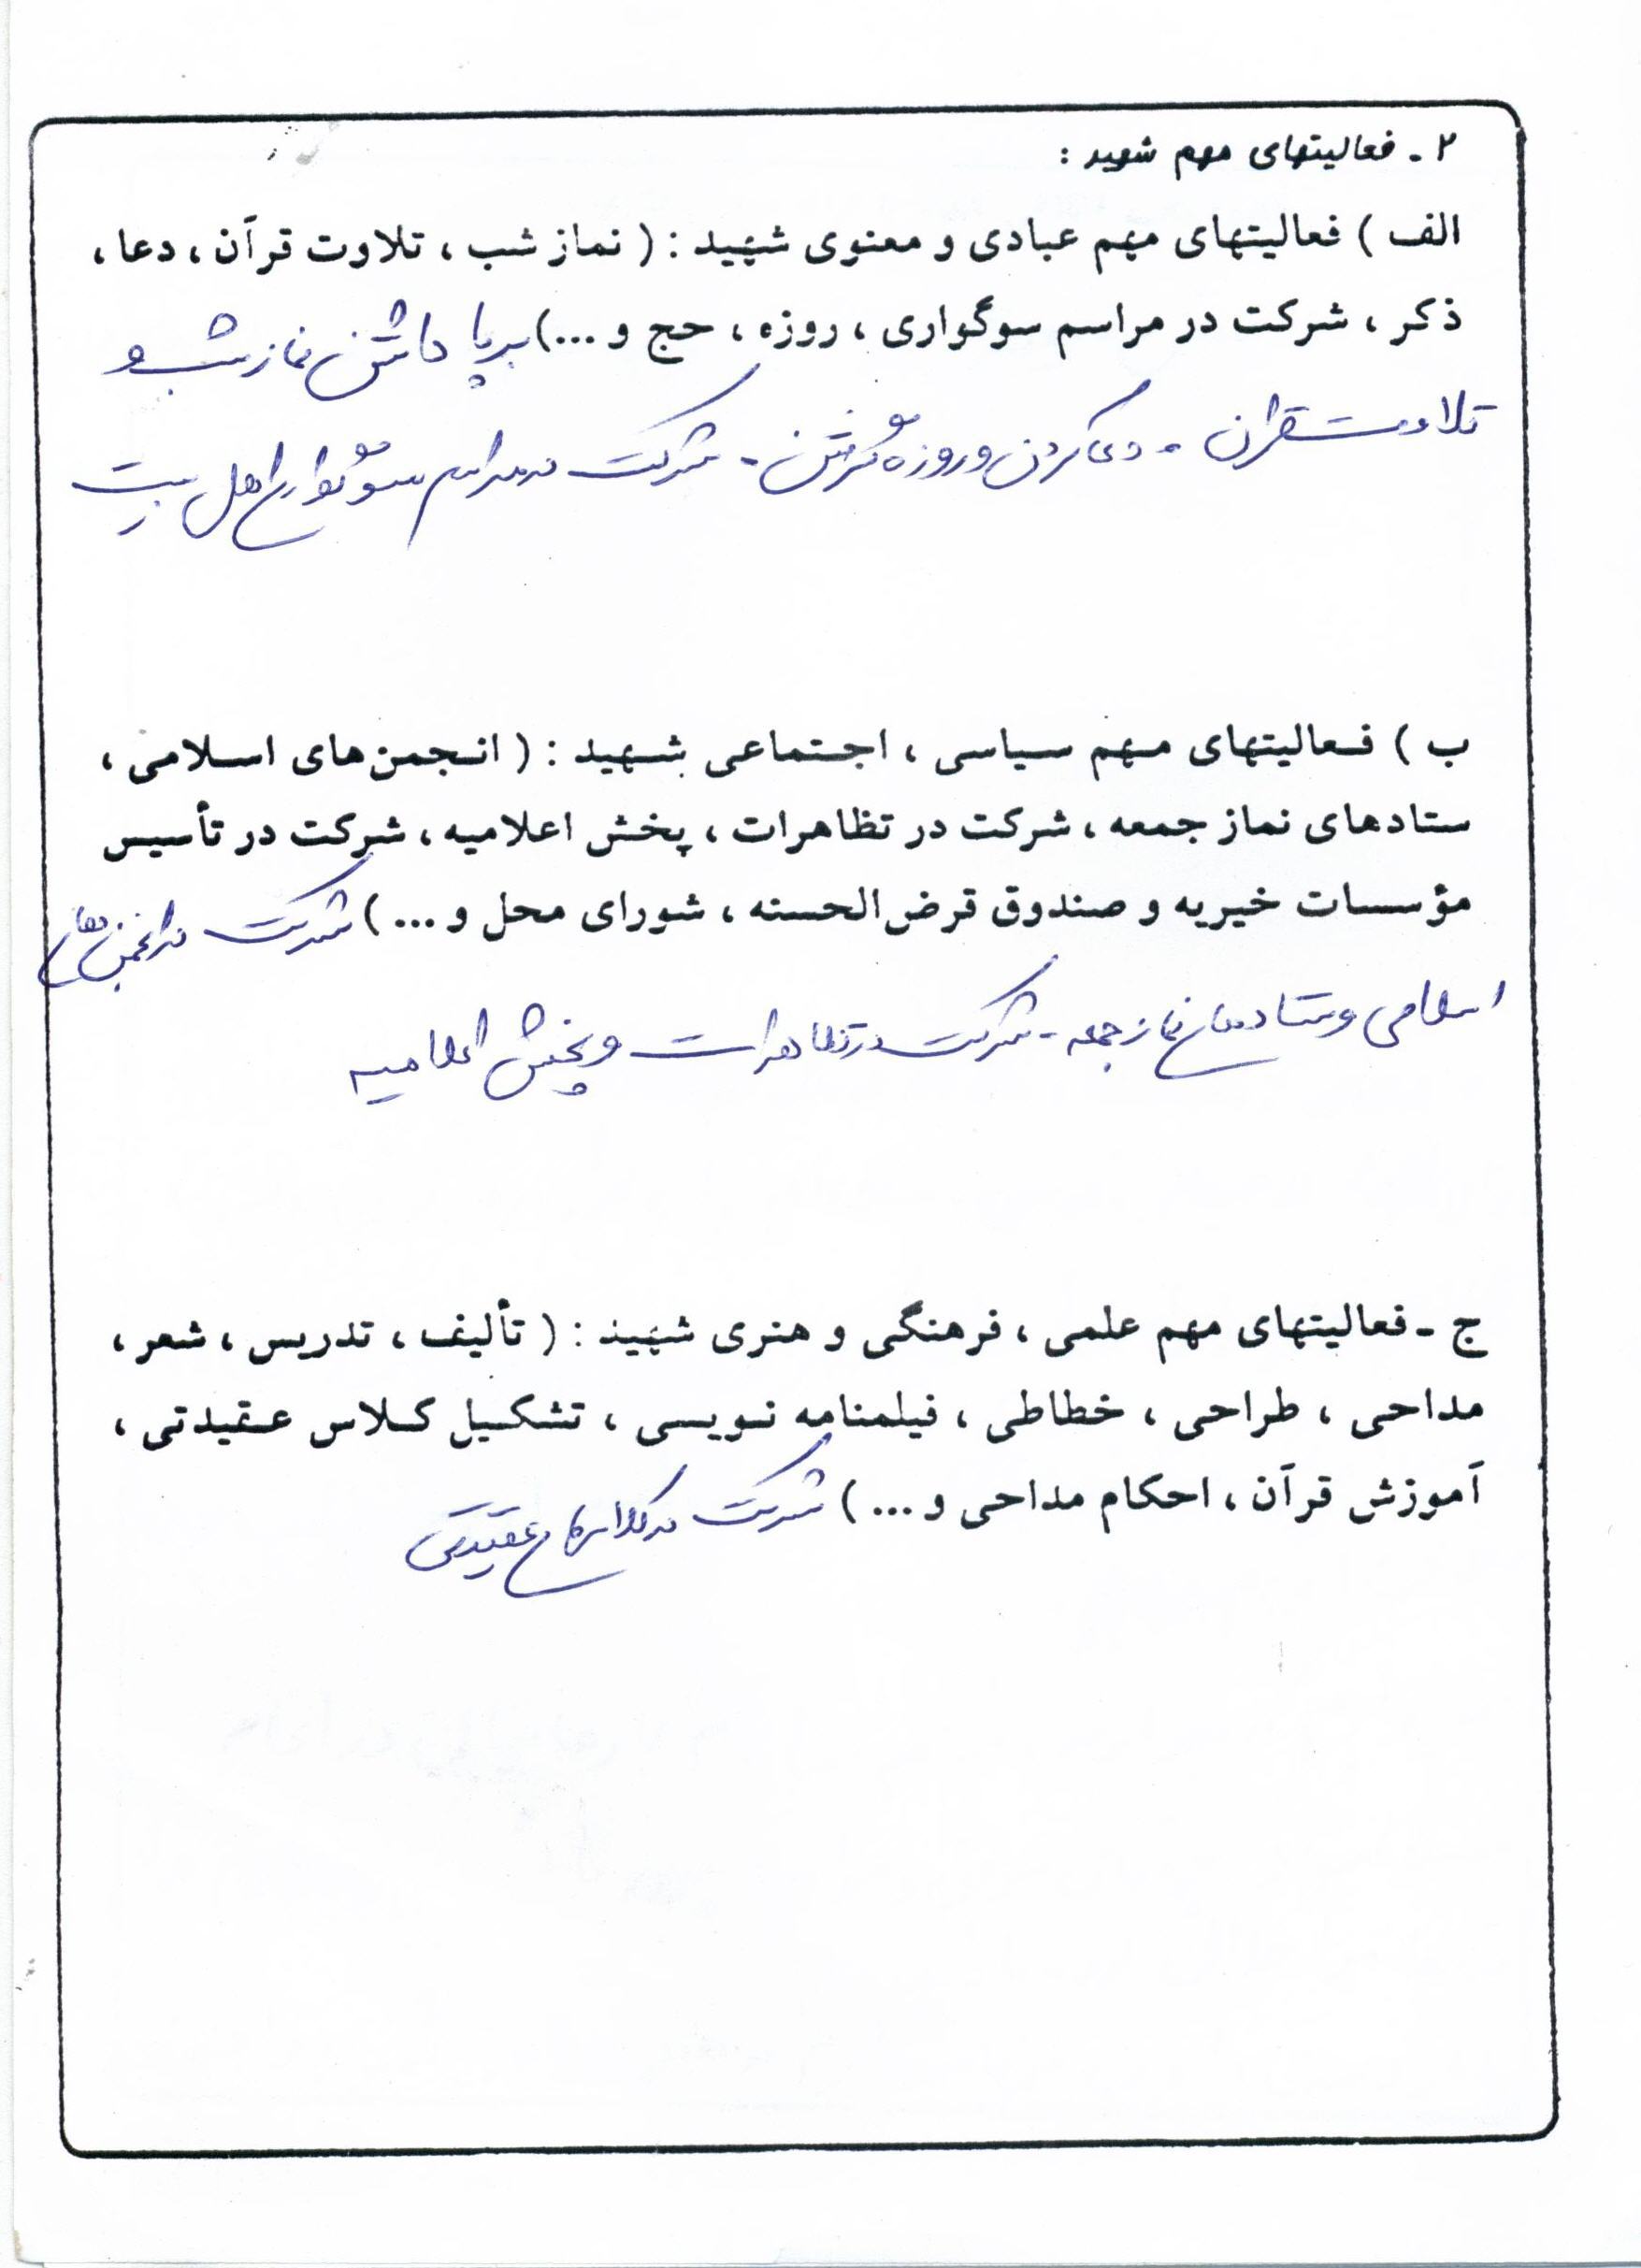 ۲ - فعالیتهای مهم شهید :
الف ) فعالیتهای مهم عبادی و معنوی شهید : ( نماز شب ، تلاوت قرآن ، دعا ،
ذکر ، شرکت در مراسم سوگواری ، روزه ، حج و ...) برپا داشتن نماز شب و
تلاوت قرآن - دعا کردن و روزه گرفتن - شرکت در مراسم سوگواری اهل بیت
ب ) فعالیتهای مهم سیاسی ، اجتماعی شهید : ( انجمن‌های اسلامی ،
ستادهای نماز جمعه ، شرکت در تظاهرات ، پخش اعلامیه ، شرکت در تأسیس
مؤسسات خیریه و صندوق قرض‌الحسنه ، شورای محل و ... ) شرکت در انجمن های
اسلامی و ستادهای نماز جمعه - شرکت در تظاهرات و پخش اعلامیه
ج - فعالیتهای مهم علمی ، فرهنگی و هنری شهید : ( تألیف ، تدریس ، شعر ،
مداحی ، طراحی ، خطاطی ، فیلمنامه نویسی ، تشکیل کلاس عقیدتی ،
آموزش قرآن ، احکام مداحی و ... ) شرکت در کلاس های عقیدتی